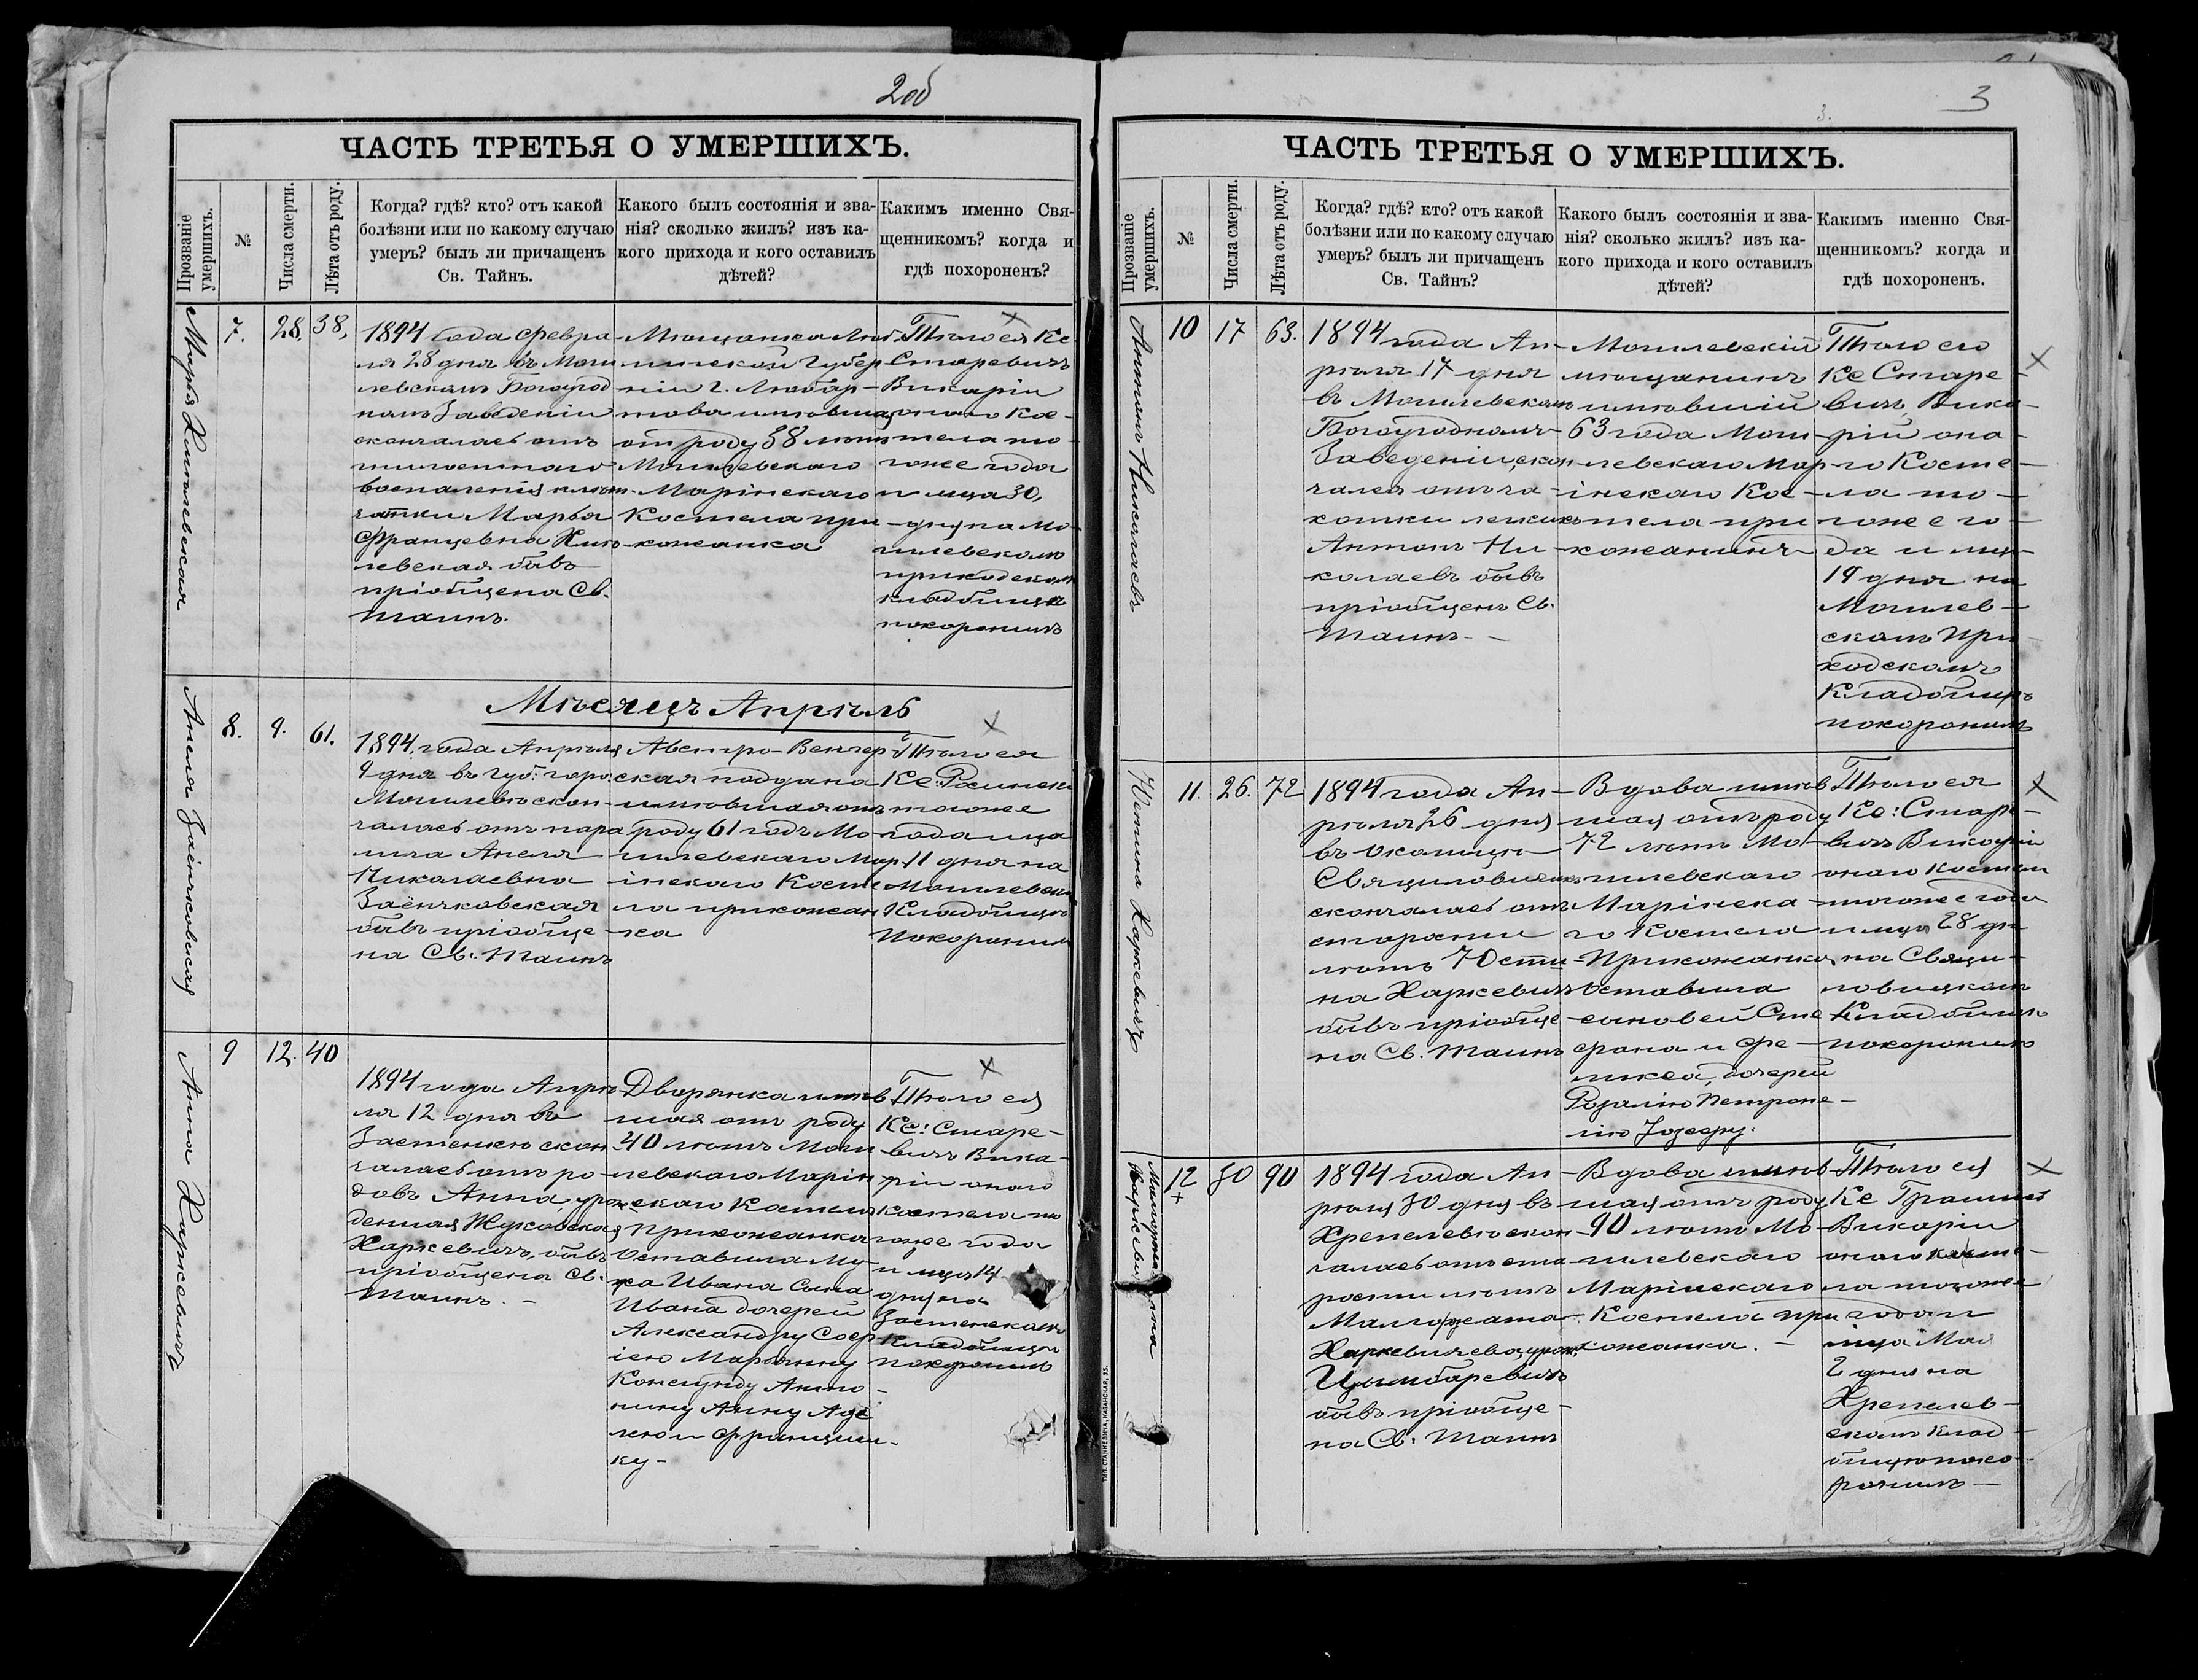 2об
ЧАСТЬ ТРЕТЬЯ О УМЕРШИХЪ.
Прозваніе умершихъ.
№
Числа смерти.
Лѣта отъ роду.
Когда? гдѣ? кто? отъ какой
болѣзни или по какому случаю
умеръ? былъ ли причащенъ
Св. Тайнъ.
Какого былъ состоянія и зва-
нія? сколько жилъ? изъ ка-
кого прихода и кого оставилъ
дѣтей?
Какимъ именно Свя-
щенникомъ? когда и
гдѣ похороненъ?
Марья
7.
28,
38,
1894 года Февра
ля 28 дня въ Моги
левскомъ Богоугод
номъ Заведеніи
скончалась отъ
воспаленія
Марья
Францевна
левская бывъ
пріобщена Св.
Таинъ.
Мѣщанка
минской Губер
ніи г.
отъ роду 38 лѣтъ
Могилевскаго
Марійнскаго
Костела при-
хожанка
Тѣло ея Кс.
Старевичъ
Викарій
онаго Кос-
тела то-
гоже года
и мца 30,
дня на Мо-
гилевскомъ
приходскомъ
кладбищѣ
похоронилъ
Мѣсяцъ Апрѣль
Анеля Заёнчковская
8.
9.
61.
1894 года Апрѣля
9 дня въ губ: горо.
Могилевѣ скон-
чалась отъ пара
лича Анеля
Николаевна
Заёнчковская
бывъ пріобще-
на Св. Таинъ
Австро-Венгер
ская поддана
имѣвшая отъ
роду 61 годъ Мо-
гилевскаго Мар
інскаго Косте
ла прихожан
ка
Тѣло ея
Кс:
тогоже
года мца
11 дня на
Могилевском
Кладбищѣ
Похоронилъ
Анна Харкевичъ
9
12.
40
1894 года Апрѣ
ля 12 дня въ
Застенкѣ скон
чалась отъ ро-
довъ Анна, уро
денная Жуковская
Харкевичъ, бывъ
пріобщена Св.
Таинъ. -
Дворянка имѣв
шая отъ роду
40 лѣтъ Моги
левскаго Марін
скаго Костела
прихожанка
Оставила Му-
жа Ивана Сына
Ивана дочерей
Александру Соф
ію Марьянну
Констанцію Анто-
нину Анну Адѣ
лю и Францишк
ку-
Тѣло ея
Кс: Старе-
вичъ Вика-
рій онаго
костела то
гоже года
и мца 14
дня на
Застенскомъ
Кладбищѣ
похоронилъ
3
3.
ЧАСТЬ ТРЕТЬЯ О УМЕРШИХЪ.
Прозваніе умершихъ.
№
Числа смерти.
Лѣта отъ роду.
Когда? гдѣ? кто? отъ какой
болѣзни или по какому случаю
умеръ? былъ ли причащенъ
Св. Тайнъ?
Какого былъ состоянія и зва-
нія? сколько жилъ? изъ ка-
кого прихода и кого оставилъ
дѣтей?
Какимъ именно Свя-
щенникомъ? когда и
гдѣ похороненъ.
Антонъ Николаевъ
10
17
63.
1894 года Ап-
рѣля 17 дня
въ Могилевскомъ
Богоугодномъ
Заведеніи, скон
чался отъ ча-
хотки легкихъ
Антонъ Ни-
колаевъ бывъ
пріобщенъ Св.
Таинъ-
Могилевскій
мѣщанинъ
имѣвшій
63 года Моги-
левскаго Мар
інскаго Кос-
тела при
хожанинъ
Тѣло его
Кс Старе-
вичъ, Вика-
рій она-
го Косте-
ла то-
гоже го-
да и мца
19 дня на
Могилев-
скомъ При
ходскомъ
Кладбищѣ
похоронилъ
Юстина Харкевичъ
11.
26.
72
1894 года Ап-
рѣля 26 дня
въ околицѣ
скончалась отъ
старости
лѣтъ Юсти-
на Харкевичъ
бывъ пріобще-
на Св. Таинъ
Вдова имѣв
шая отъ роду
72 лѣтъ Мо-
гилевскаго
Марійнска-
го Костела
Прихожанка
Оставила
сыновей Сте
фана и Фе-
ликса, дочерей
Розалію Петроне-
лію Юзефу.
Тѣло ея
Кс: Старе-
вичъ Викарій
онаго Костела
тогоже года
и мца 28 дн
на
Кладбищѣ
похоронилъ
12
30
90
1894 года Ап-
рѣля 30 дня въ
Хрепелевѣ скон
чалась отъ ста
рости лѣтъ
Малгожата
Харкевичева урож.
Цимбаревичъ
бывъ пріобще-
на Св. Таинъ
Вдова имѣв
шая отъ роду
90 лѣтъ Мо-
гилевскаго
Марінскаго
Костела при
хожанка. -
Тѣло ея
Кс
Викарій
онаго косте-
ла тогоже
года и
мца Мая
2 дня на
Хрепелев-
скомъ клад-
бищѣ похо-
ронилъ-
ТИП. СТАНКЕВИЧА, КАЗАНСКАЯ, 33.